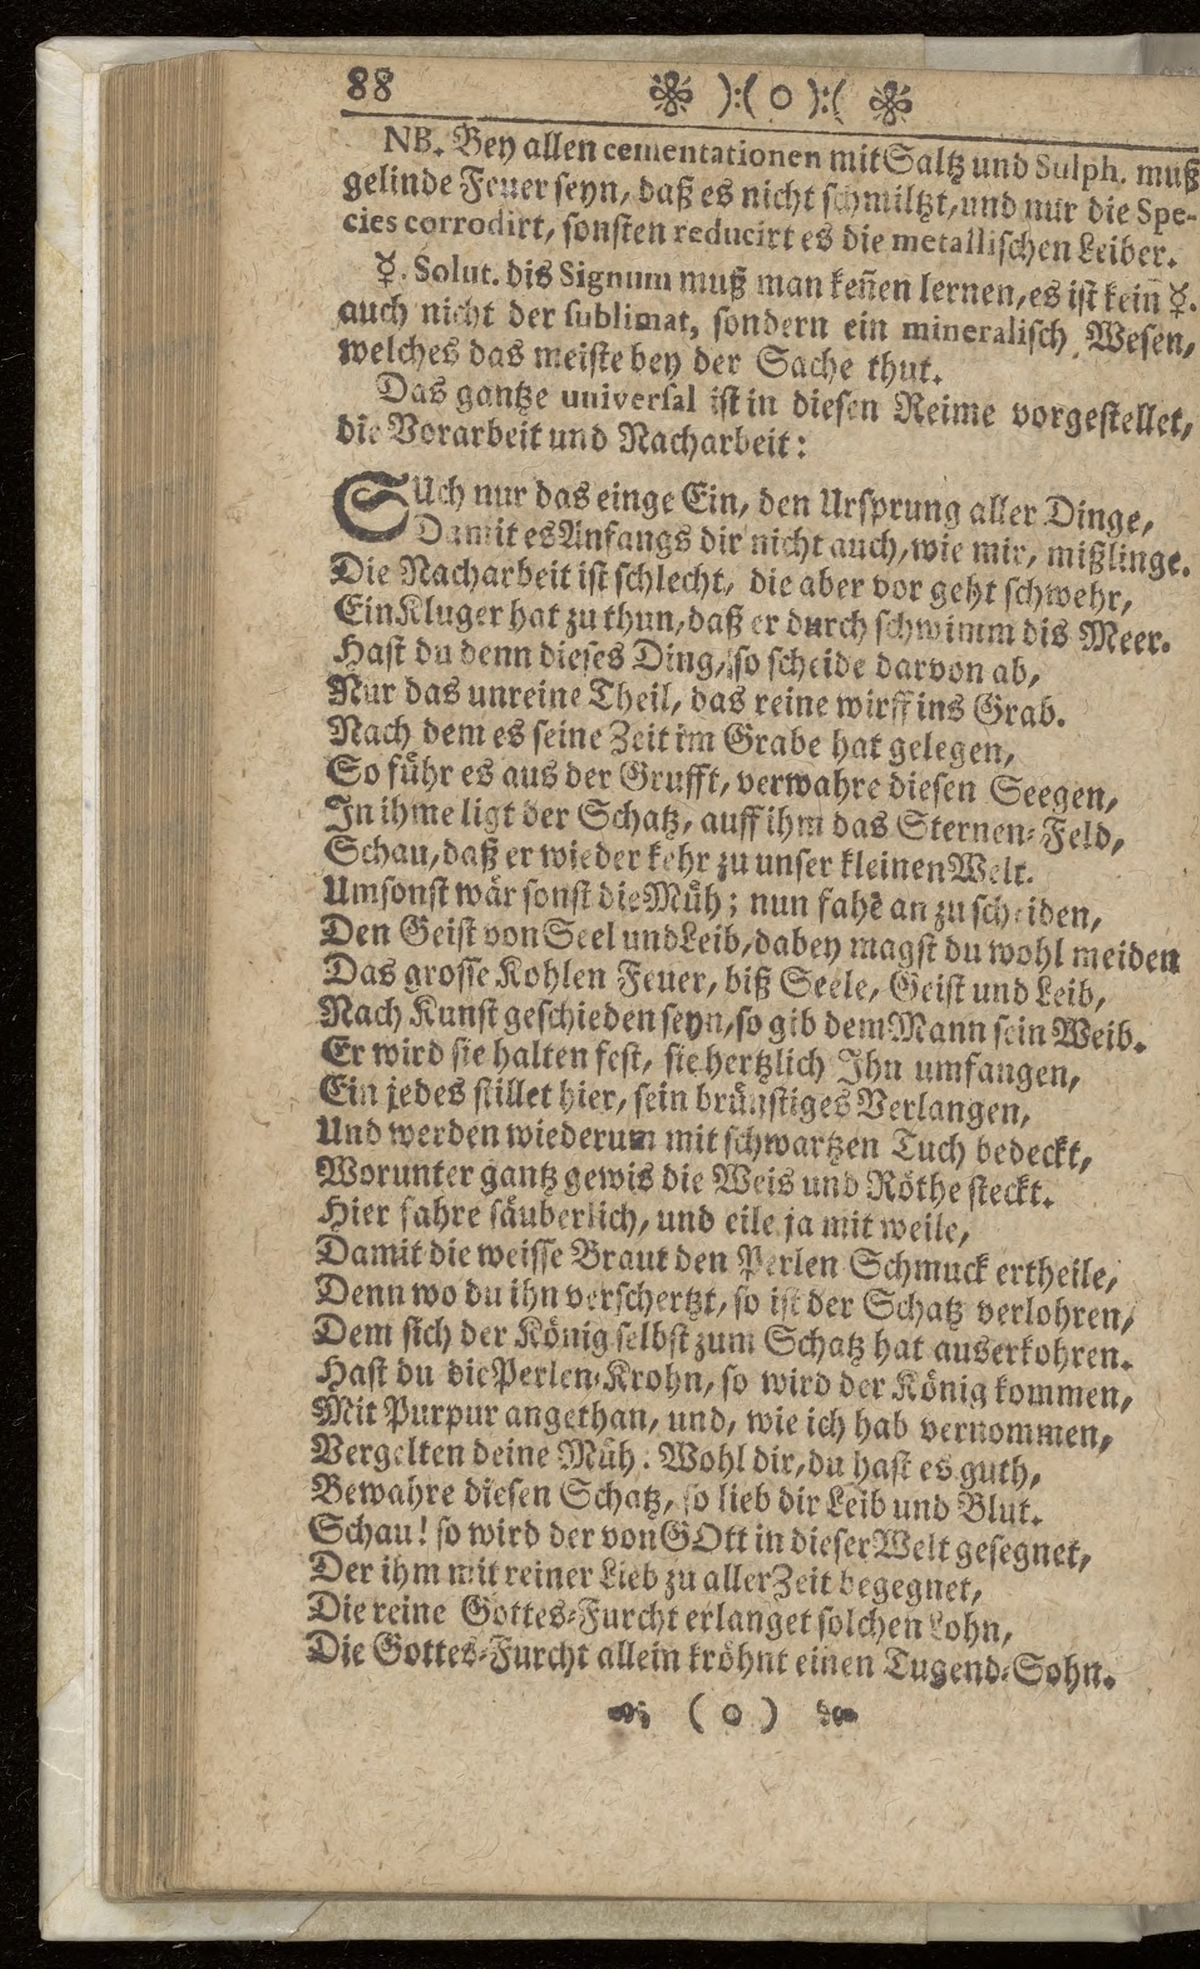 88 ❀ ):( o ):( ❀
NB. Bey allen cementationen mit Saltz und Sulph. muß
gelinde Feuer seyn, daß es nicht schmiltzt, und nur die Spe-
cies corrodirt, sonsten reducirt es die metallischen Leiber.
☿. Solut. dis Signum muß man keñen lernen, es ist kein ☿.
auch nicht der sublimat, sondern ein mineralisch Wesen,
welches das meiste bey der Sache thut.
Das gantze universal ist in diesen Reime vorgestellet,
die Vorarbeit und Nacharbeit:
SUch nur das einge Ein, den Ursprung aller Dinge,
Damit es Anfangs dir nicht auch, wie mir, mißlinge.
Die Nacharbeit ist schlecht, die aber vor geht schwehr,
Ein Kluger hat zu thun, daß er durch schwimm dis Meer.
Hast du denn dieses Ding, so scheide darvon ab,
Nur das unreine Theil, das reine wirff ins Grab.
Nach dem es seine Zeit im Grabe hat gelegen,
So führ es aus der Grufft, verwahre diesen Seegen,
In ihme ligt der Schatz, auff ihm das Sternen-Feld,
Schau, daß er wieder kehr zu unser kleinen Welt.
Umsonst wär sonst die Müh; nun fahe an zu scheiden,
Den Geist von Seel und Leib, dabey magst du wohl meiden
Das grosse Kohlen Feuer, biß Seele, Geist und Leib,
Nach Kunst geschieden seyn, so gib dem Mann sein Weib.
Er wird sie halten fest, sie hertzlich Ihn umfangen,
Ein jedes stillet hier, sein brünstiges Verlangen,
Und werden wiederum mit schwartzen Tuch bedeckt,
Worunter gantz gewis die Weis und Röthe steckt.
Hier fahre säuberlich, und eile ja mit weile,
Damit die weisse Braut den Perlen Schmuck ertheile,
Denn wo du ihn verschertzt, so ist der Schatz verlohren,
Dem sich der König selbst zum Schatz hat auserkohren.
Hast du die Perlen-Krohn, so wird der König kommen,
Mit Purpur angethan, und, wie ich hab vernommen,
Vergelten deine Müh. Wohl dir, du hast es guth,
Bewahre diesen Schatz, so lieb dir Leib und Blut.
Schau! so wird der von GOtt in dieser Welt gesegnet,
Der ihm mit reiner Lieb zu aller Zeit begegnet,
Die reine Gottes-Furcht erlanget solchen Lohn,
Die Gottes-Furcht allein kröhnt einen Tugend-Sohn.
( o )